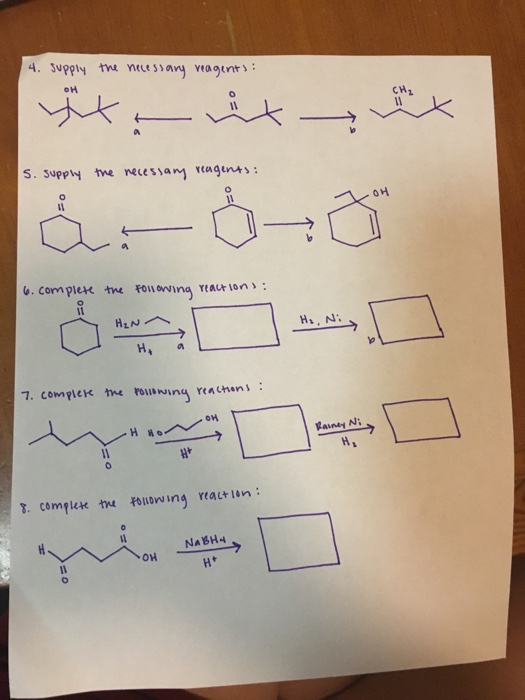 4. Supply the necessary reagents:
OH O CH2
a b
5. Supply the necessary reagents:
O O OH
a b
6. complete the following reactions:
O
H2N H2, Ni
H+ a b
7. complete the following reactions:
H HO OH Raney Ni
O H+ H2
8. complete the following reaction:
O
H NaBH4
OH H+
O